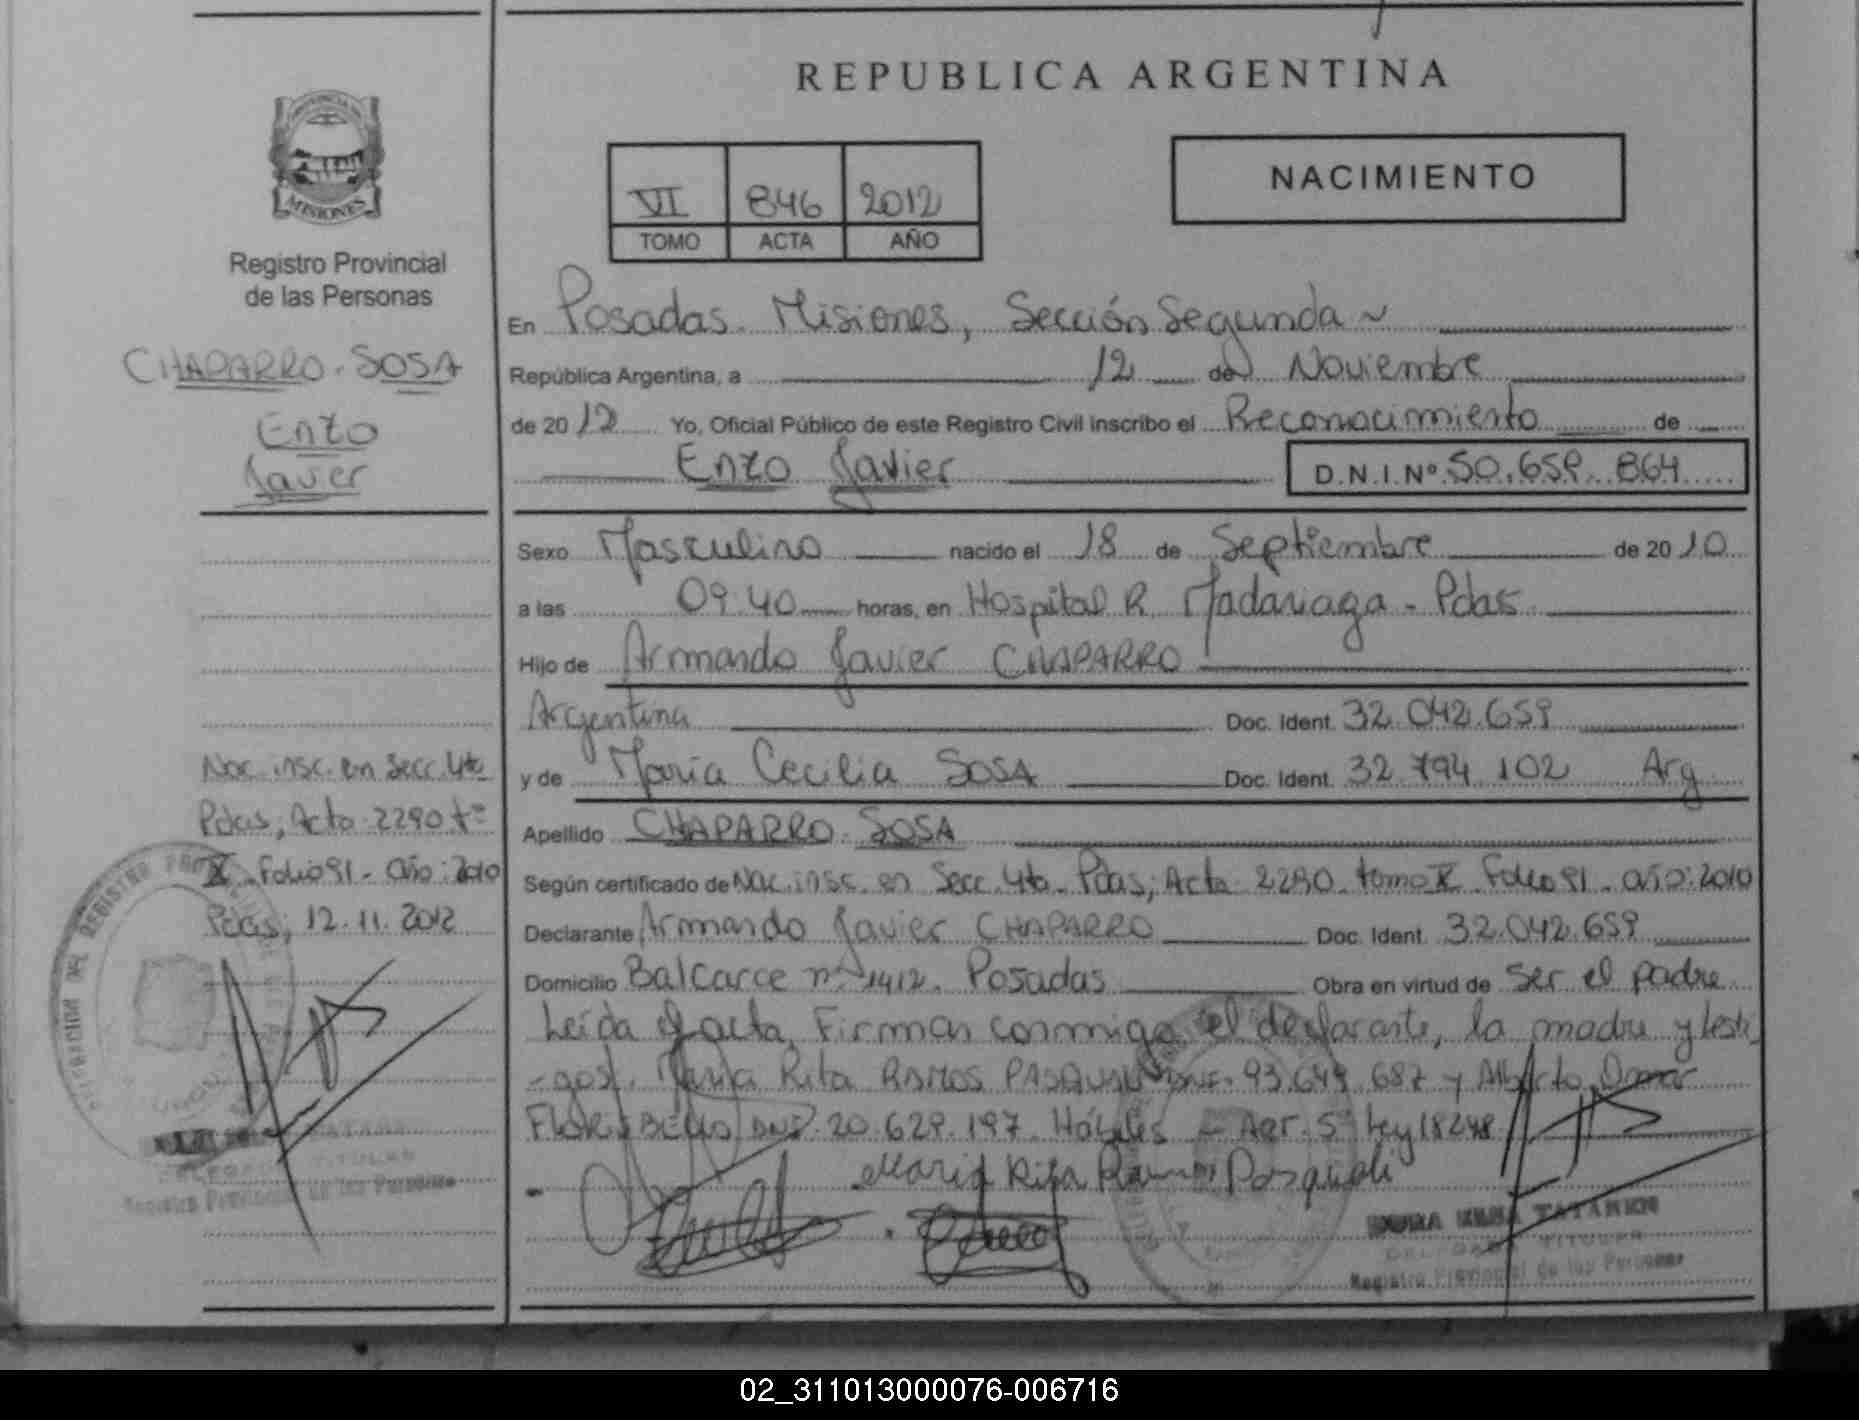 REPUBLICA ARGENTINA
PROVINCIA DE
MISIONES
Registro Provincial
de las Personas
CHAPARRO - SOSA
Enzo
Javier
Nac. insc. en Secc. 4ta
Pdas, Acta 2290 tº
X - Folio 91 - Año: 2010
Pdas; 12.11.2012
VI 846 2012
TOMO ACTA AÑO
NACIMIENTO
En Posadas. Misiones, Sección Segunda ~
República Argentina, a 12 de Noviembre
de 2012 Yo, Oficial Público de este Registro Civil inscribo el Reconocimiento de
Enzo Javier D.N.I.Nº 50.659.864
Sexo Masculino nacido el 18 de Septiembre de 2010
a las 09.40 horas, en Hospital R. Madariaga - Pdas
Hijo de Armando Javier CHAPARRO
Argentina Doc. Ident. 32.042.659
y de María Cecilia SOSA Doc. Ident. 32.794.102 Arg.
Apellido CHAPARRO - SOSA
Según certificado de Nac. insc. en Secc. 4ta. Pdas; Acta 2290. tomo X Folio 91 - año: 2010
Declarante Armando Javier CHAPARRO Doc. Ident. 32.042.659
Domicilio Balcarce nº 1412. Posadas Obra en virtud de ser el padre
Leída el acta, Firman conmigo el declarante, la madre y testi
-gos. María Rita RAMOS 93.649.687 y Alberto Omar
DNI. 20.629.197. Hábiles - Agr. 5º Ley 18248
María Rita Ramos Pasquali
TATAREN
DELEGADA TITULAR
Registro Provincial de las Personas
DELEGADA TITULAR
Registro Provincial de las Personas
02_311013000076-006716